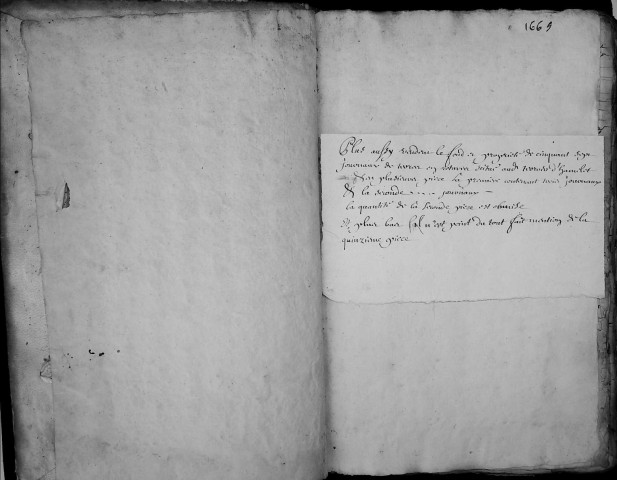 1669
Plus aussy vendeu le fond et propriete de cinquant sept
journaux de terre en roture situé audt terroir d'Hamelet
en plusieurs piece la premiere contenant trois journaux
& la seconde - - - - journaux -
la quantité de la seconde piece est obmise
Et plus bas Il n'est point du tout fait mention de la
quinzieme piece